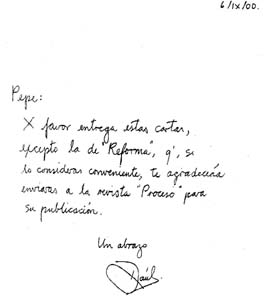 6/IX/00.
Pepe:
X favor entrega estas cartas,
excepto la de "Reforma", q', si
lo consideras conveniente, te agradecería
enviaras a la revista "Proceso" para
su publicación.
Un abrazo
Raúl.